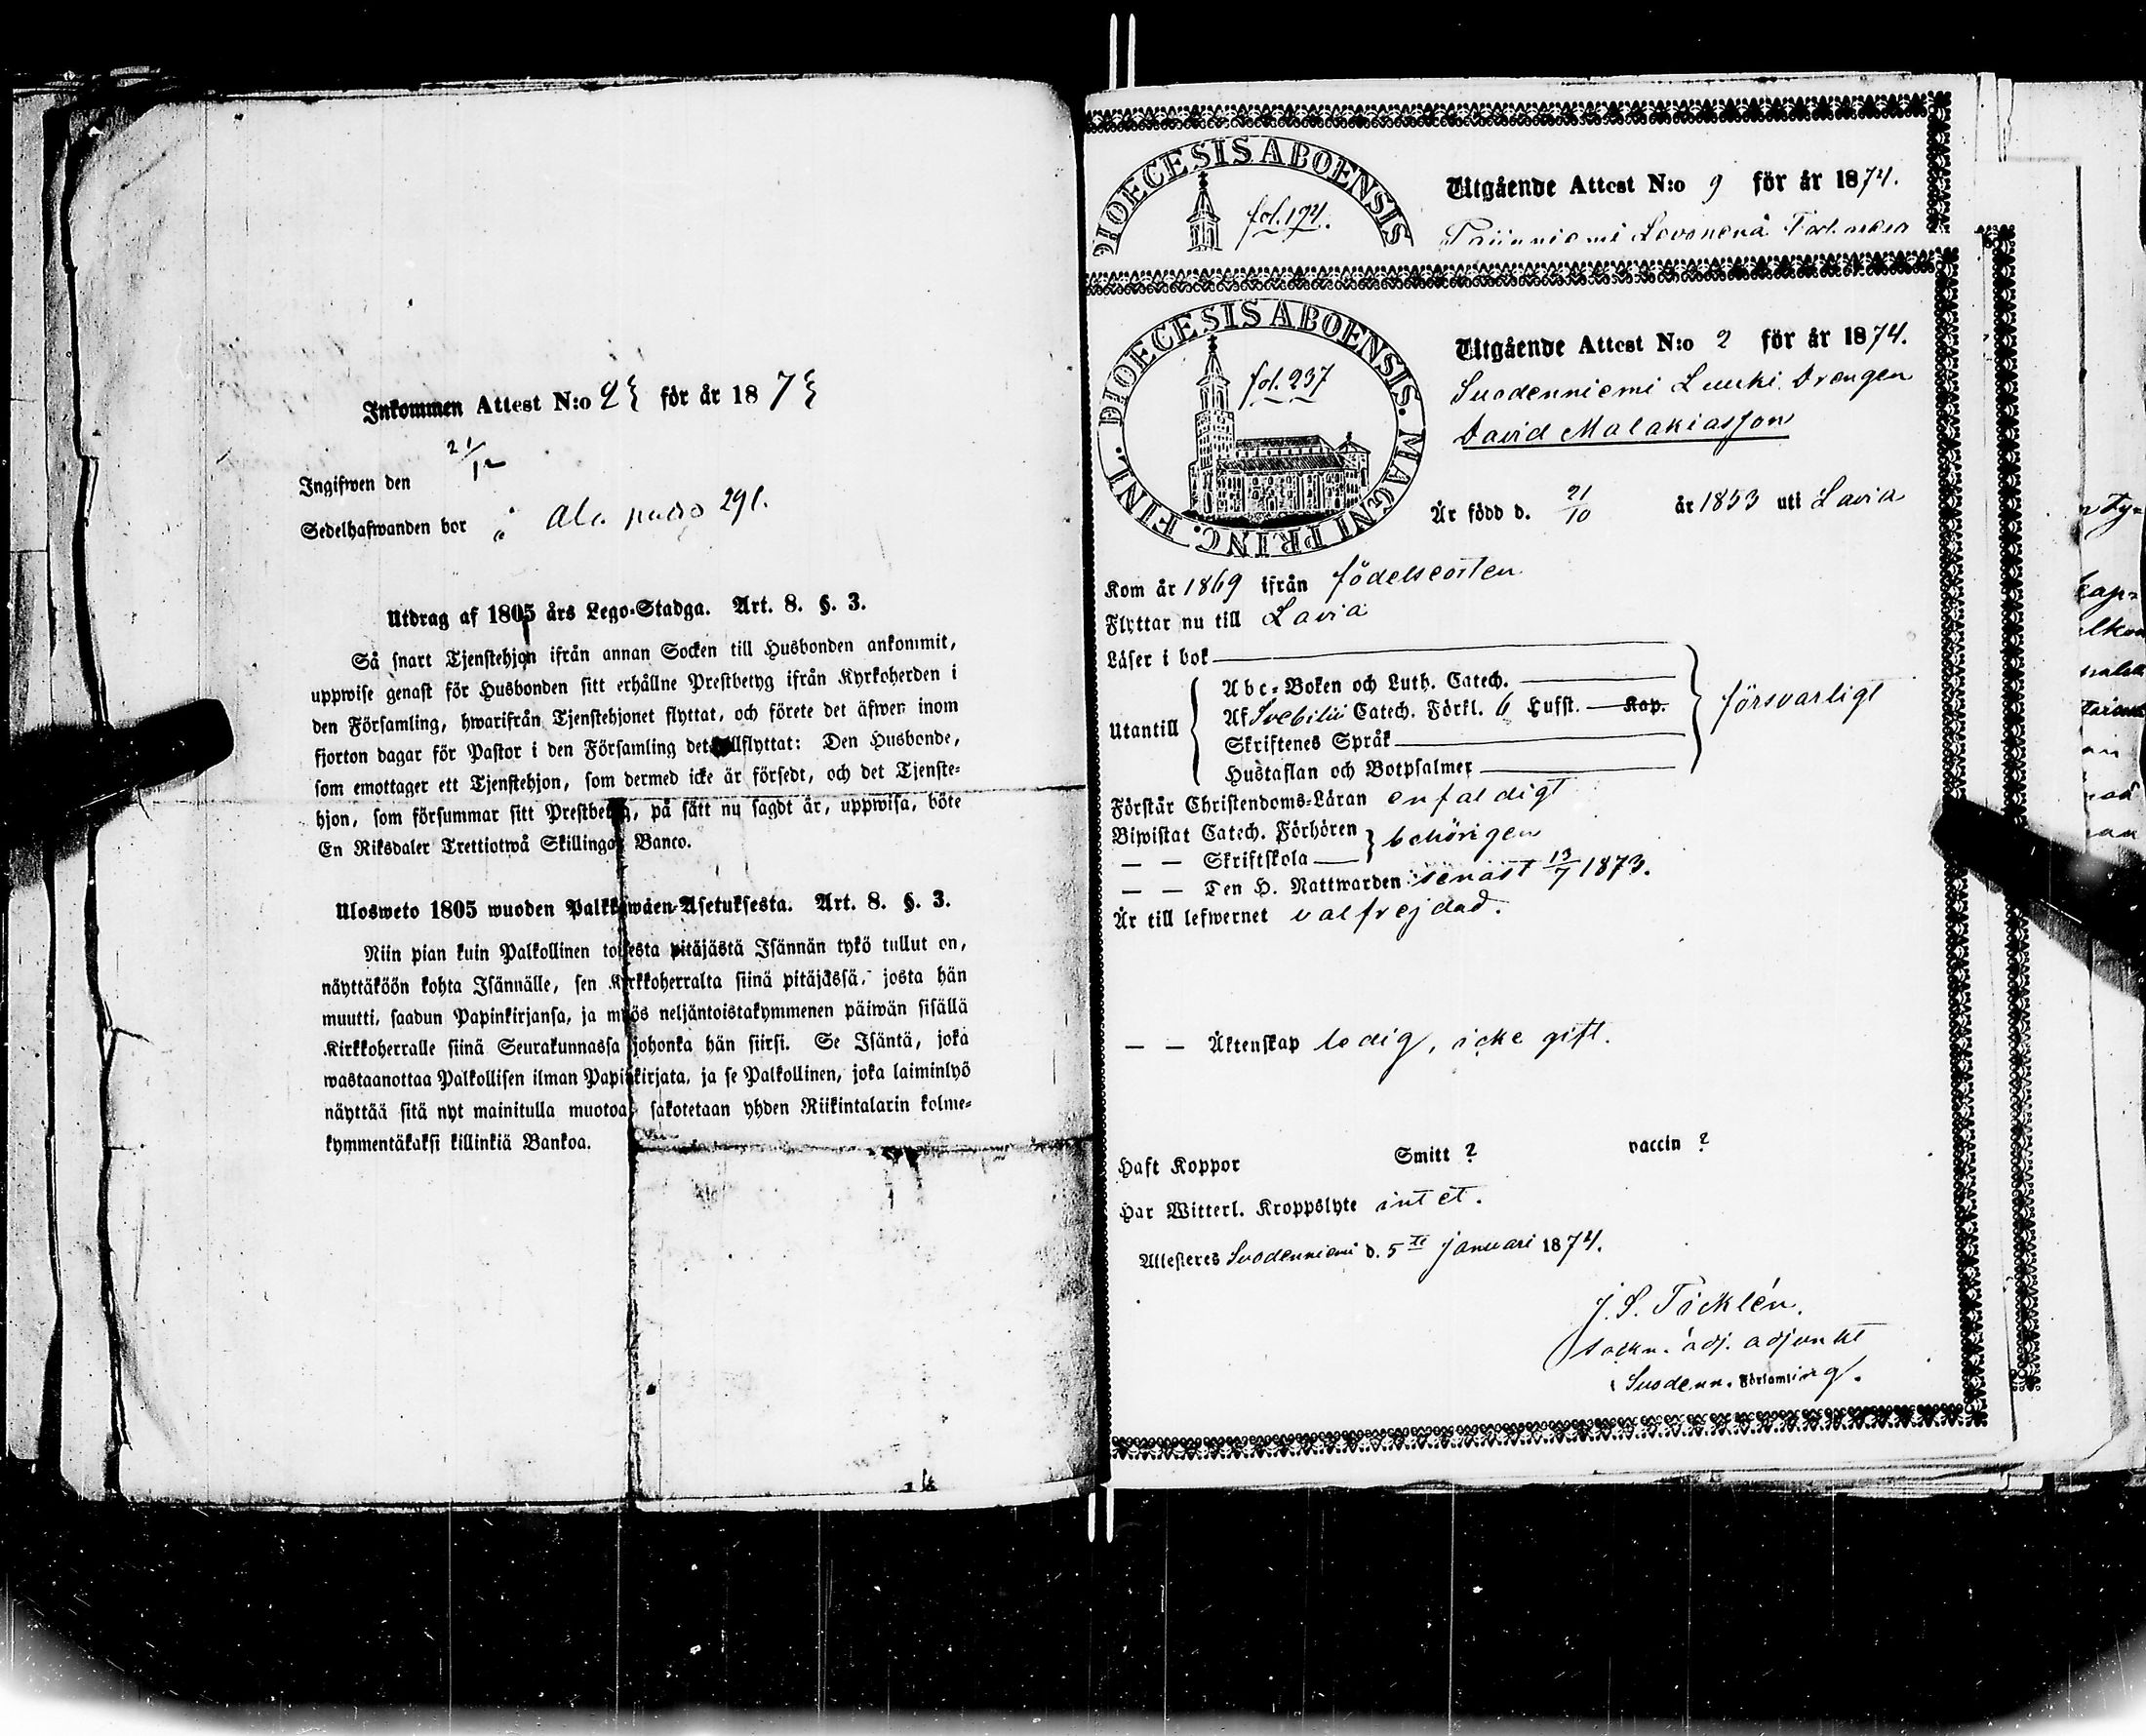 Inkommen Attest N:o för år 187
21/12
Ingifwen den
Sedelhafwanden bor i 291.
Utdrag af 1805 års Lego-Stadga. Art. 8. §. 3.
Så snart Tjenstehjon ifrån annan Socken till Husbonden ankommit,
uppwise genast för Husbonden sitt erhållne Prestbetyg ifrån Kyrkoherden i
den Församling, hwarifrån Tjenstehjonet flyttat, och förete det äfwen inom
fjorton dagar för Pastor i den Församling det tillflyttat: Den Husbonde,
som emottager ett Tjenstehjon, som dermed icke är försedt, och det Tjenste-
hjon, som försummar sitt Prestbetyg, på sätt nu sagdt är, uppwisa, böte
En Riksdaler Trettiotwå Skillingar Banco.
Ulosweto 1805 wuoden Palkkawäen-Asetuksesta. Art. 8. §. 3.
Niin pian kuin Palkollinen toisesta pitäjästä Isännän tykö tullut on,
näyttäköön kohta Isännälle, sen Kirkkoherralta siinä pitäjässä, josta hän
muutti, saadun Papinkirjansa, ja myös neljäntoistakymmenen päiwän sisällä
Kirkkoherralle siinä Seurakunnassa johonka hän siirsi. Se Isäntä, joka
wastaanottaa Palkollisen ilman Papinkirjata, ja se Palkollinen, joka laiminlyö
näyttää sitä nyt mainitulla muotoa, sakotetaan yhden Riikintalarin kolme-
kymmentäkaksi killinkiä Bankoa.
DIOECESIS ABOENSIS
fol. 174.
Utgående Attest N:o 9 för år 1874.
DIOECESIS ABOENSIS. MAGNI PRINC. FINL.
fol. 237
Utgående Attest N:o 2 för år 1874.
Suodenniemi Luuki Drengen
David Malakiasson
Är född d. 21/10 år 1853 uti Lavia
Kom år 1869 ifrån födelseorten
Flyttar nu till Lavia
Läser i bok
Utantill
Abc-Boken och Luth. Catech.
Af Svebilii Catech. Förkl. 6 Hufst. Kap.
Skriftenes Språk
Hustaflan och Botpsalmer
försvarligt
Förstår Christendoms-Läran enfaldigt
Biwistat Catech. Förhören
— — Skriftskola
behörigen
— — Den H. Nattwarden senast 13/7 1873.
Är till lefwernet välfrejdad.
— — Äktenskap ledig, icke gift.
Haft Koppor Smitt ? vaccin ?
Har Witterl. Kroppslyte intet.
Attesteres Suodenniemi d. 5te Januari 1874.
J. S. Täcklén.
sockn. adj. adjunkt
i Suodenn. Församling.